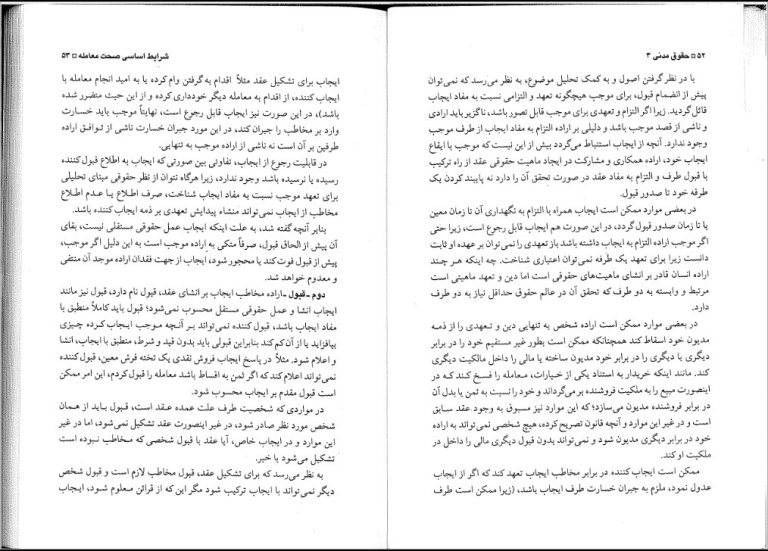 ۵۲ □ حقوق مدنی ۳
با در نظر گرفتن اصول و به کمک تحلیل موضوع، به نظر می‌رسد که نمی‌توان
پیش از انضمام قبول، برای موجب هیچگونه تعهد و التزامی نسبت به مفاد ایجاب
قائل گردید. زیرا اگر التزام و تعهدی برای موجب قابل تصور باشد، ناگزیر باید ارادی
و ناشی از قصد موجب باشد و دلیلی بر اراده التزام به مفاد ایجاب از طرف موجب
وجود ندارد. آنچه از ایجاب استنباط می‌گردد بیش از این نیست که موجب با ایقاع
ایجاب خود، اراده همکاری و مشارکت در ایجاد ماهیت حقوقی عقد از راه ترکیب
با قبول طرف و التزام به مفاد عقد در صورت تحقق آن را دارد نه پایبند کردن یک
طرفه خود تا صدور قبول.
در بعضی موارد ممکن است ایجاب همراه با التزام به نگهداری آن تا زمان معین
یا تا زمان صدور قبول گردد، در این صورت هم ایجاب قابل رجوع است، زیرا حتی
اگر موجب اراده التزام به ایجاب داشته باشد باز تعهدی را نمی‌توان بر عهده او ثابت
دانست زیرا برای تعهد یک طرفه نمی‌توان اعتباری شناخت. چه اینکه هر چند
اراده انسان قادر بر انشای ماهیت‌های حقوقی است اما دین و تعهد ماهیتی است
مرتبط و وابسته به دو طرف که تحقق آن در عالم حقوق حداقل نیاز به دو طرف
دارد.
در بعضی موارد ممکن است اراده شخص به تنهایی دین و تعهدی را از ذمه
مدیون خود اسقاط کند همچنانکه ممکن است بطور غیر مستقیم خود را در برابر
دیگری یا دیگری را در برابر خود مدیون ساخته یا مالی را داخل مالکیت دیگری
کند. مانند اینکه خریدار به استناد یکی از خیارات، معامله را فسخ کند که در
اینصورت مبیع را به ملکیت فروشنده بر می‌گرداند و خود را نسبت به ثمن یا بدل آن
در برابر فروشنده مدیون می‌سازد؛ که این موارد نیز مسبوق به وجود عقد سابق
است و در غیر این موارد و آنچه قانون تصریح کرده، هیچ شخصی نمی‌تواند به اراده
خود در برابر دیگری مدیون شود و نمی‌تواند بدون قبول دیگری مالی را داخل در
ملکیت او کند.
ممکن است ایجاب کننده در برابر مخاطب ایجاب تعهد کند که اگر از ایجاب
عدول نمود، ملزم به جبران خسارت طرف ایجاب باشد، (زیرا ممکن است طرف
شرایط اساسی صحت معامله □ ۵۳
ایجاب برای تشکیل عقد مثلاً اقدام به گرفتن وام کرده یا به امید انجام معامله با
ایجاب کننده، از اقدام به معامله دیگر خودداری کرده و از این حیث متضرر شده
باشد)، در این صورت نیز ایجاب قابل رجوع است، نهایتاً موجب باید خسارت
وارد بر مخاطب را جبران کند، در این مورد جبران خسارت ناشی از توافق اراده
طرفین بر آن است نه ناشی از اراده موجب به تنهایی.
در قابلیت رجوع از ایجاب، تفاوتی بین صورتی که ایجاب به اطلاع قبول کننده
رسیده یا نرسیده باشد وجود ندارد، زیرا هرگاه نتوان از نظر حقوقی مبنای تحلیلی
برای تعهد موجب نسبت به مفاد ایجاب شناخت، صرف اطلاع یا عدم اطلاع
مخاطب از ایجاب نمی‌تواند منشاء پیدایش تعهدی بر ذمه ایجاب کننده باشد.
بنابر آنچه گفته شد، به علت اینکه ایجاب عمل حقوقی مستقلی نیست، بقای
آن پیش از الحاق قبول، صرفاً متکی به اراده موجب است به این دلیل اگر موجب،
پیش از قبول فوت کند یا محجور شود، ایجاب از جهت فقدان اراده موجد آن منتفی
و معدوم خواهد شد.
دوم ـ قبول ـ اراده مخاطب ایجاب بر انشای عقد، قبول نام دارد، قبول نیز مانند
ایجاب انشا و عمل حقوقی مستقل محسوب نمی‌شود؛ قبول باید کاملاً منطبق با
مفاد ایجاب باشد، قبول کننده نمی‌تواند بر آنچه موجب ایجاب کرده چیزی
بیافزاید یا از آن کم کند بنابراین قبولی باید بدون قید و شرط، منطبق با ایجاب، انشا
و اعلام شود. مثلاً در پاسخ ایجاب فروش نقدی یک تخته فرش معین، قبول کننده
نمی‌تواند اعلام کند که اگر ثمن به اقساط باشد معامله را قبول کردم، این امر ممکن
است قبول مقدم بر ایجاب محسوب شود.
در مواردی که شخصیت طرف علت عمده عقد است، قبول باید از همان
شخص مورد نظر صادر شود، در غیر اینصورت عقد تشکیل نمی‌شود، اما در غیر
این موارد و در ایجاب خاص، آیا عقد با قبول شخصی که مخاطب نبوده است
تشکیل می‌شود یا خیر.
به نظر می‌رسد که برای تشکیل عقد، قبول مخاطب لازم است و قبول شخص
دیگر نمی‌تواند با ایجاب ترکیب شود مگر این که از قرائن معلوم شود، ایجاب